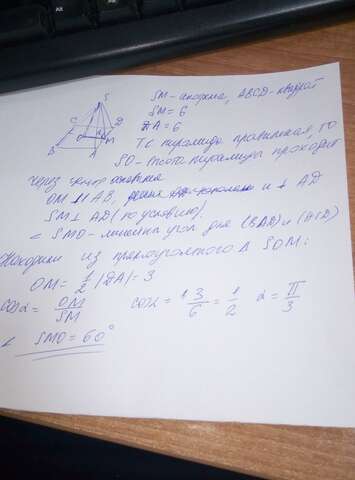 S
C D
O M
B A
SM - апофема, ABCD - квадрат
SM = 6
DA = 6
Тк пирамида правильная, то
SO - высота пирамиды проходит
через центр основания
OM || AB, и ⊥ AD
SM ⊥ AD (по условию).
∠ SMO - линейный угол для
Находим из прямоугольного Δ SOM:
OM = 1/2 |DA| = 3
cos α = OM/SM cos α = 3/6 = 1/2 α = π/3
∠ SMO = 60°